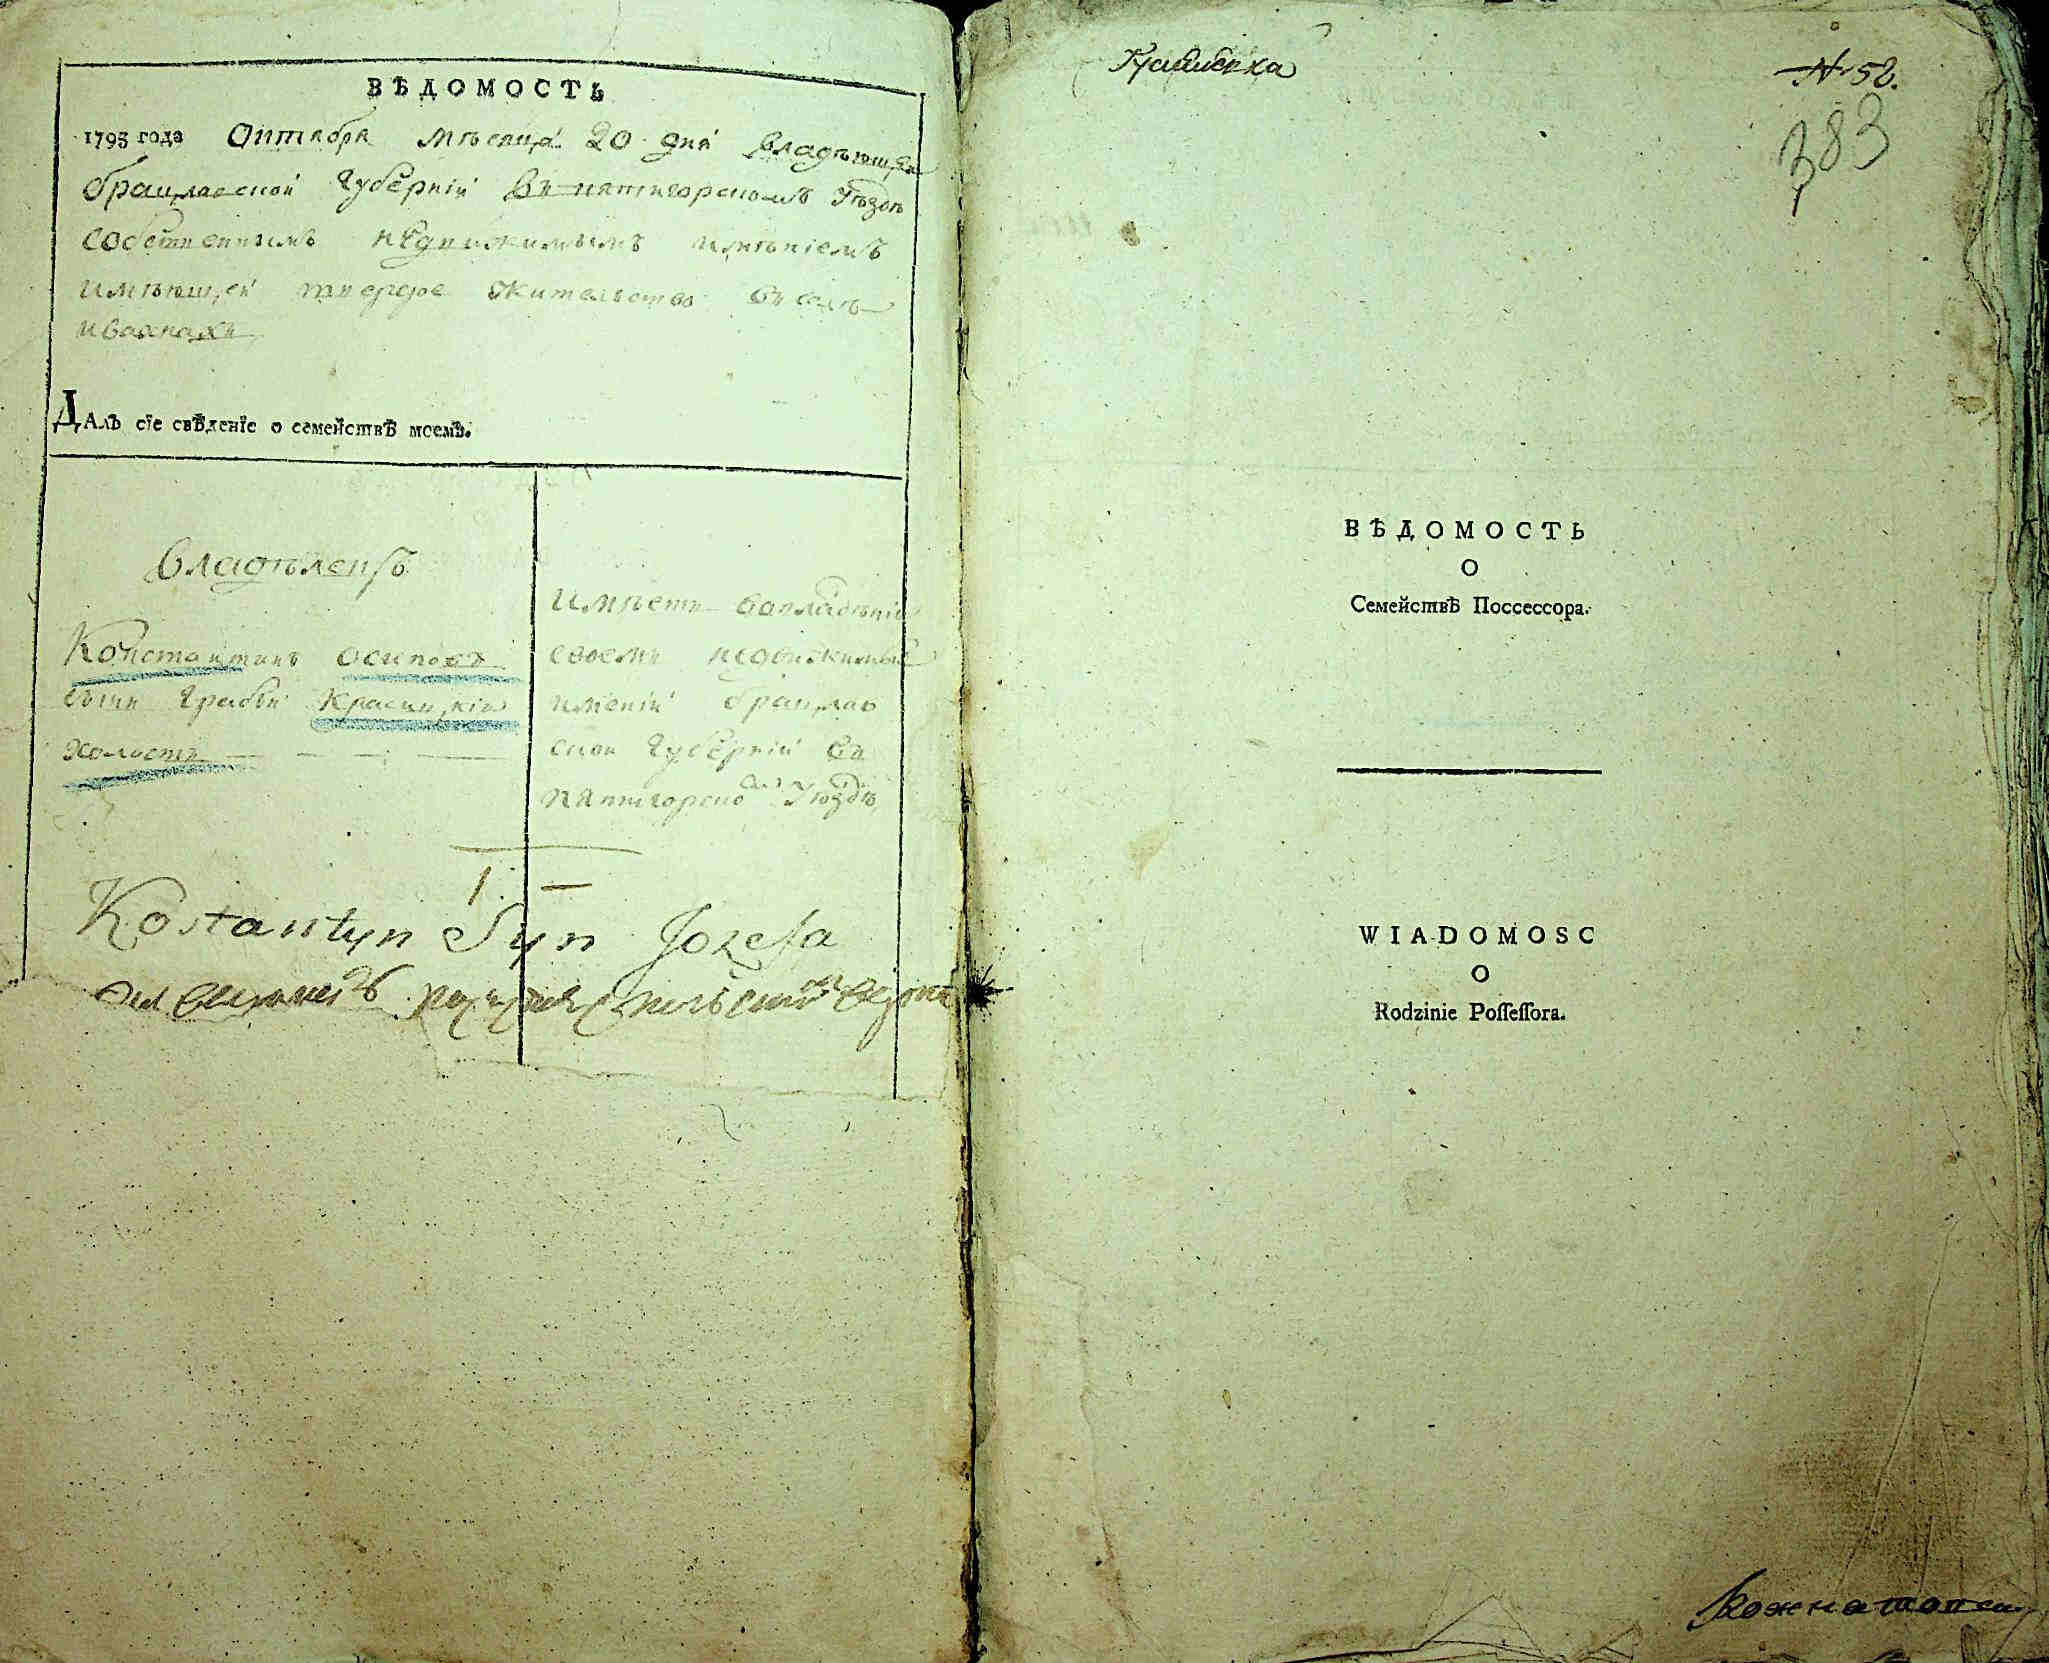 ВѢДОМОСТЬ
1795 года Октября мѣсяца 20 дня владѣющей
брацлавской губерніи въ пятигорскомъ уѣздѣ
собственнымъ недвижимымъ имѣніемъ
имѣющей твердое жительство въ селѣ
ивахнахъ
Далъ сіе свѣденіе о семействѣ моемъ.
владѣлецъ
Константинъ осиповъ
сынъ графъ Красицкій
холостъ
имѣетъ во владѣніи
своемъ недвижимыя
имѣніи брацлав
ской губерніи въ
пятигорскомъ уѣздѣ
1. —
Kostantyn Syn Jozefa
№ 52.
383
ВѢДОМОСТЬ
О
Семействѣ Поссессора.
WIADOMOSC
O
Rodzinie Poſſeſſora.